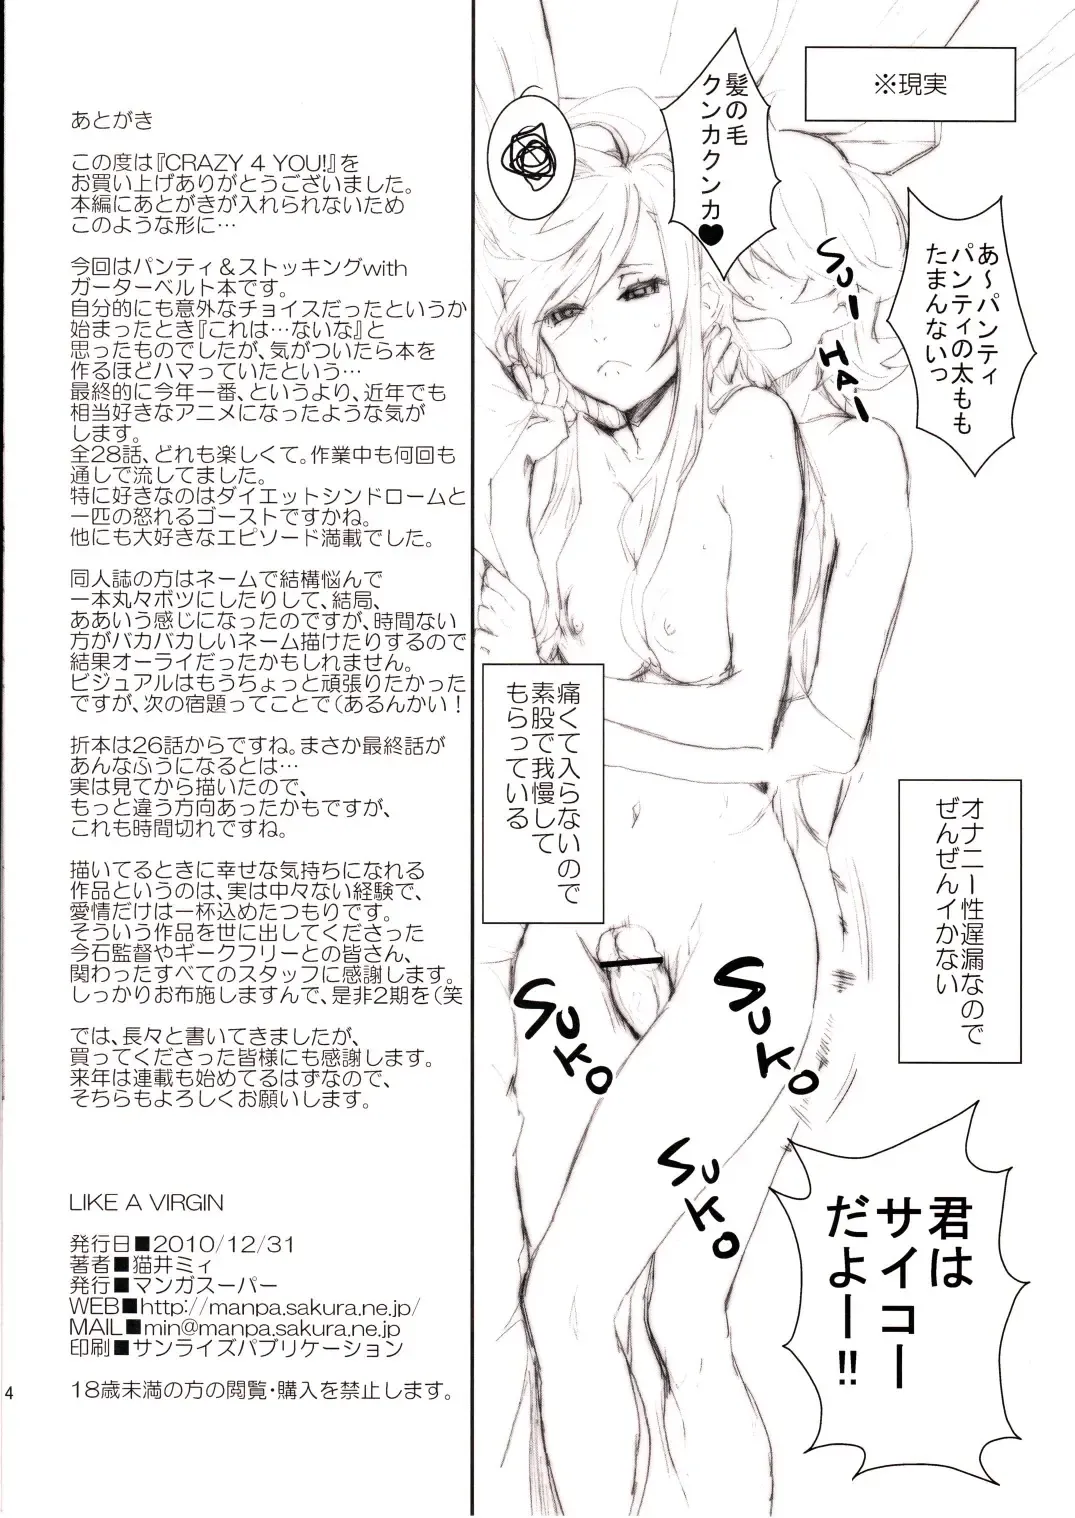 あとがき
この度は『CRAZY 4 YOU!』を
お買い上げありがとうございました。
本編にあとがきが入れられないため
このような形に…
今回はパンティ＆ストッキングwith
ガーターベルト本です。
自分的にも意外なチョイスだったというか
始まったとき『これは…ないな』と
思ったものでしたが、気がついたら本を
作るほどハマっていたという…
最終的に今年一番、というより、近年でも
相当好きなアニメになったような気が
します。
全28話、どれも楽しくて。作業中も何回も
通しで流してました。
特に好きなのはダイエットシンドロームと
一匹の怒れるゴーストですかね。
他にも大好きなエピソード満載でした。
同人誌の方はネームで結構悩んで
一本丸々ボツにしたりして、結局、
ああいう感じになったのですが、時間ない
方がバカバカしいネーム描けたりするので
結果オーライだったかもしれません。
ビジュアルはもうちょっと頑張りたかった
ですが、次の宿題ってことで（あるんかい！
折本は26話からですね。まさか最終話が
あんなふうになるとは…
実は見てから描いたので、
もっと違う方向あったかもですが、
これも時間切れですね。
描いてるときに幸せな気持ちになれる
作品というのは、実は中々ない経験で、
愛情だけは一杯込めたつもりです。
そういう作品を世に出してくださった
今石監督やギークフリーとの皆さん、
関わったすべてのスタッフに感謝します。
しっかりお布施しますんで、是非2期を（笑
では、長々と書いてきましたが、
買ってくださった皆様にも感謝します。
来年は連載も始めてるはずなので、
そちらもよろしくお願いします。
LIKE A VIRGIN
発行日■2010/12/31
著者■猫井ミィ
発行■マンガスーパー
WEB■http://manpa.sakura.ne.jp/
MAIL■min@manpa.sakura.ne.jp
印刷■サンライズパブリケーション
18歳未満の方の閲覧・購入を禁止します。
4
※現実
あ～パンティ
パンティの太もも
たまんないっ
髪の毛
クンカクンカ♥
SUI
HAI
痛くて入らないので
素股で我慢して
もらっている
オナニー性遅漏なので
ぜんぜんイかない
SUKO
SUKO
SUKO
君は
サイコー
だよー!!